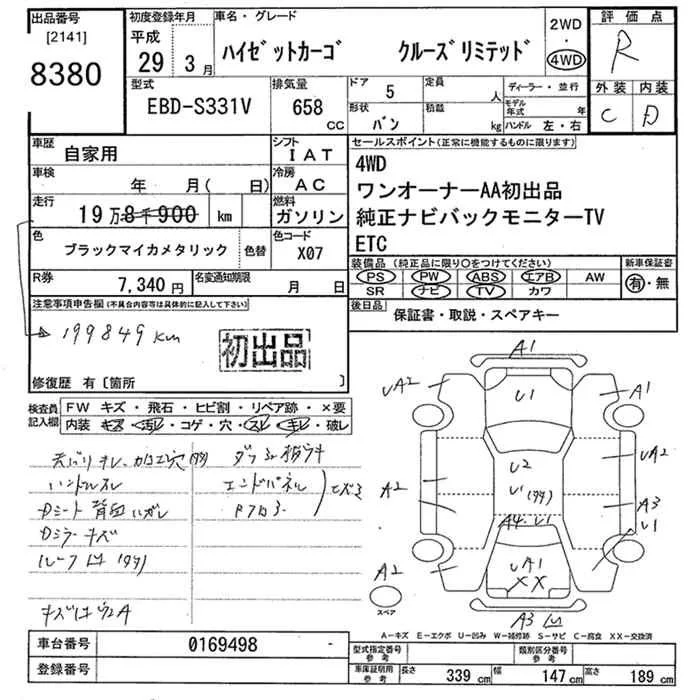 出品番号 初度登録年月 車名・グレード 2WD 評価点
[2141] 平成 ハイゼットカーゴ クルーズリミテッド ・ R
8380 29 3月 4WD 外装 内装
型式 排気量 ドア 5 定員 人 ディーラー・並行 C D
EBD-S331V 658 CC 形状 バン 積載 kg モデル年式 年 ハンドル 左・右
車歴 自家用 シフト IAT セールスポイント(正常に機能するものに限ります)
車検 年 月( 日) 冷房 AC 4WD
走行 19万8千900 km 燃料 ガソリン ワンオーナーAA初出品
純正ナビバックモニターTV
色 ブラックマイカメタリック 色替 色コード X07 ETC
R券 7,340円 名変通知期限 月 日 装備品(純正品に限り○をつけてください) 新車保証書
PS PW ABS エアB AW 有・無
SR ナビ TV カワ
注意事項申告欄(不具合内容等は具体的に記入して下さい) 後日品 保証書・取説・スペアキー
199849km
初出品
修復歴 有〔箇所 〕
検査員記入欄 FW キズ・飛石・ヒビ割・リペア跡・×要
内装 キズ・汚レ・コゲ・穴・スレ・キレ・破レ
ハンドルスレ エンドパネル
キズ
A1
UA2 U1 A1
U2 UA2
A2 U1 A3
A4.U1 U1
A2 UA1
XX
スペア A3
A-キズ E-エクボ U-凹み W-補修跡 S-サビ C-腐食 XX-交換済
車台番号 0169498 型式指定番号 参考 類別区分番号 参考
登録番号 車庫証明用 参考 長さ 339cm 幅 147cm 高さ 189cm